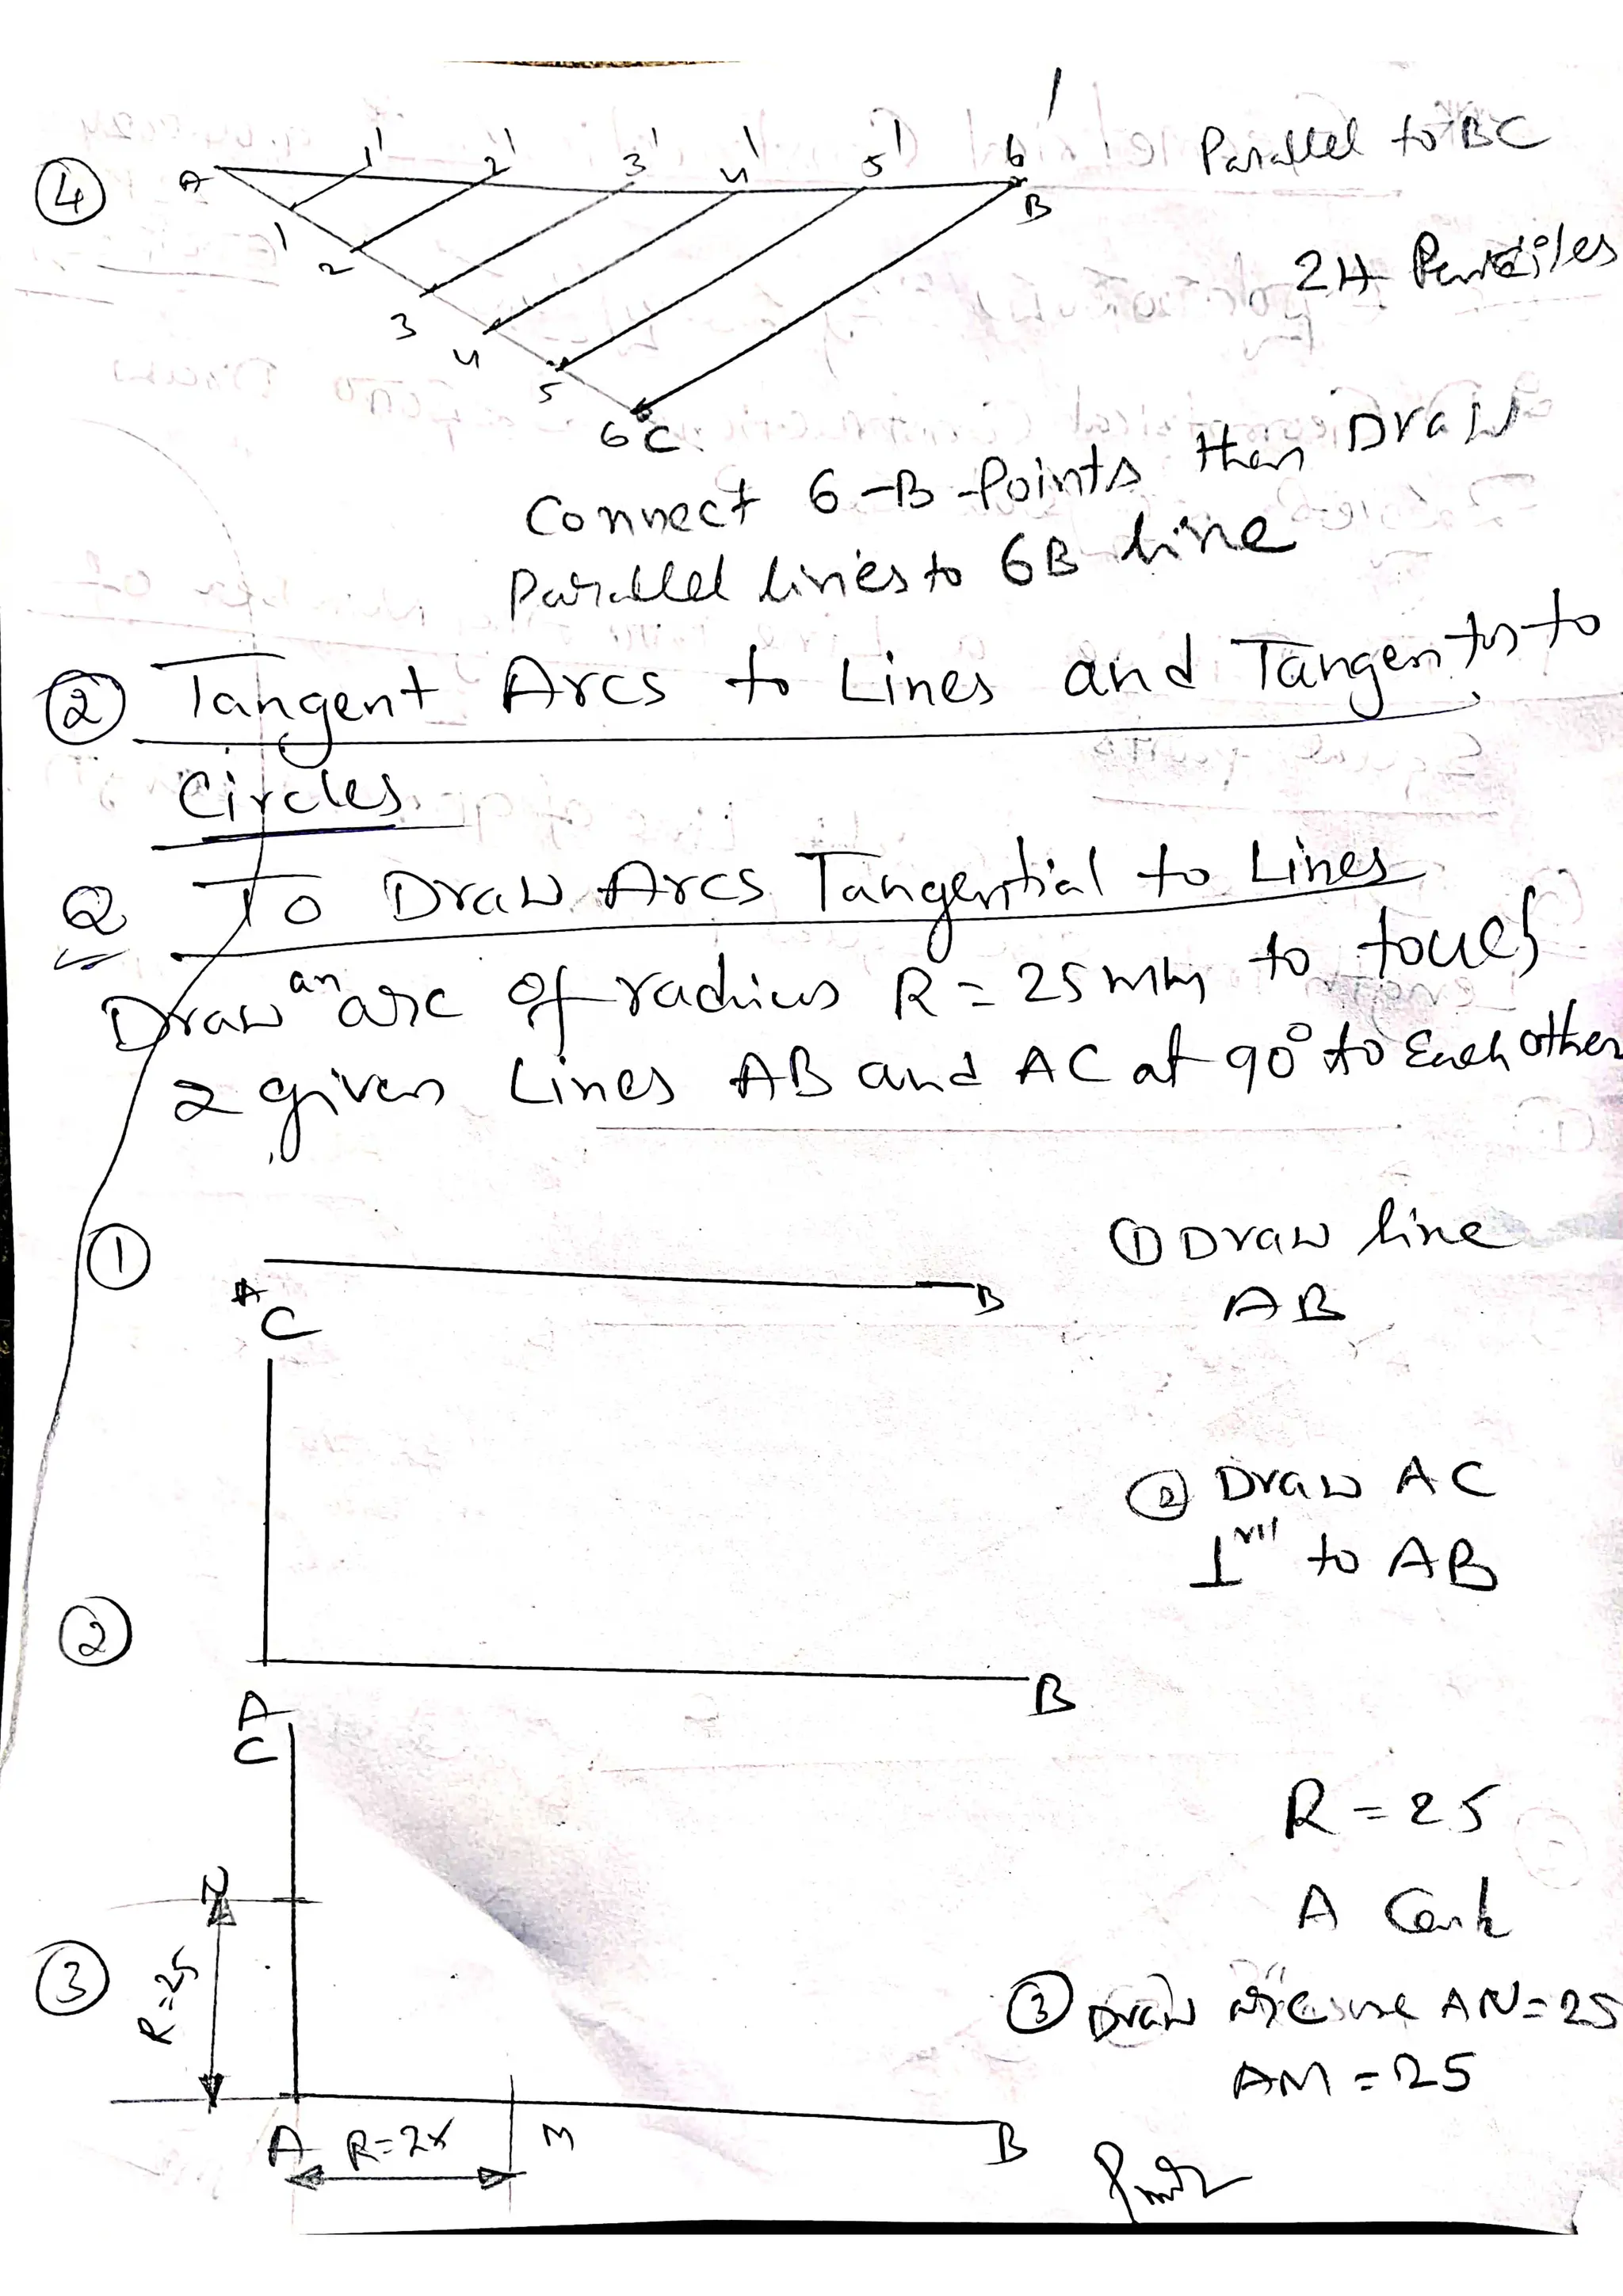 ④
A 1' 2' 3' 4' 5' 6'
B
1 2 3 4 5 6 C
Parallel to BC
2H Penciles
Connect 6-B Points then Draw
Parallel lines to 6B line
② Tangent Arcs to Lines and Tangents to
Circles
Q To Draw Arcs Tangential to Lines
Draw an arc of radius R = 25 mm to touch
2 given Lines AB and AC at 90° to Each other
①
A B
① Draw line
AB
C
② Draw AC
⊥ to AB
②
A B
C
R = 25
N
A
③
R=25
③ Draw arc AN=25
AM = 25
A R=25 M B